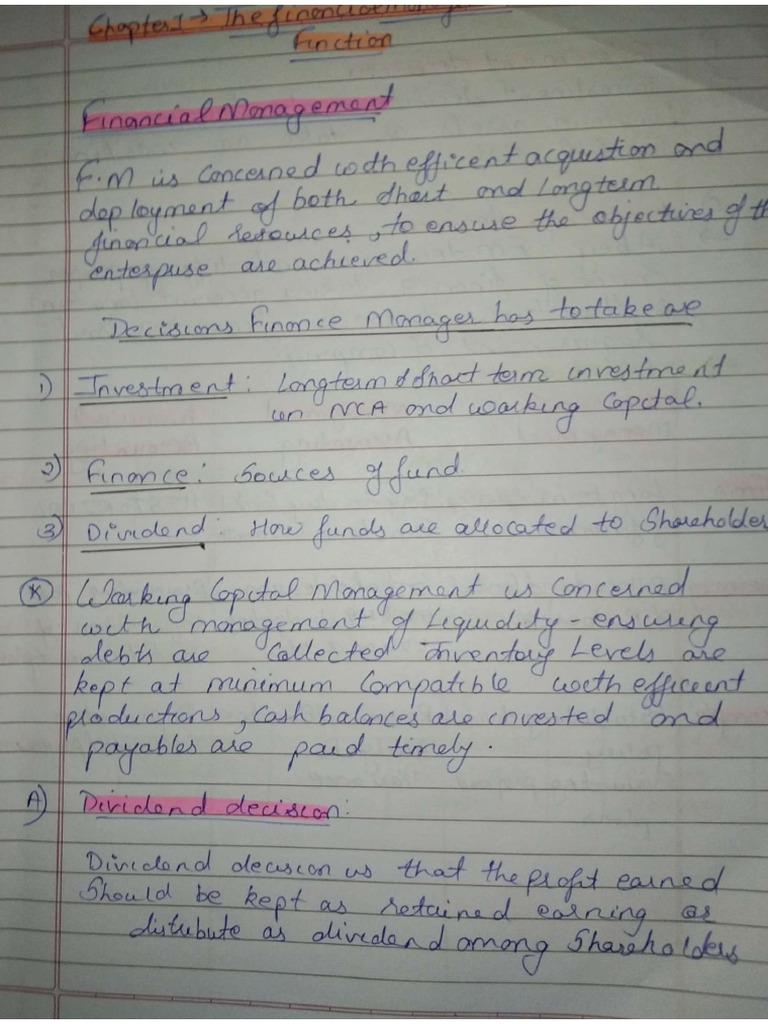 Chapter 1 → The financial Manage
Finction
Financial Management
F.M is concerned with efficent acquestion and
deployment of both short and long term
financial resources, to ensure the objectives of th
enterpuse are achieved.
Decisions Finance Manager has to take are
1) Investment: Long term & short term investment
in NCA and working Capital.
2) Finance: Sources of fund
3) Dividend: How funds are allocated to Shareholder
* Working Capital Management is concerned
with management of Liquidity - ensuring
debts are Collected Inventory Levels are
kept at minimum Compatible with efficient
productions, cash balances are invested and
payables are paid timely.
A) Dividend decision:
Dividend decision is that the profit earned
Should be kept as retained earning or
distribute as dividend among Shareholders